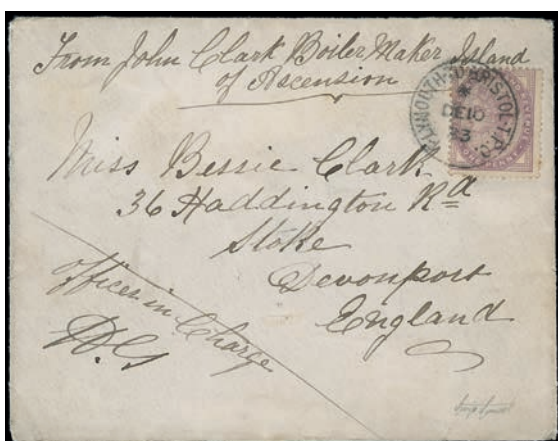 From John Clark Boiler Maker Island
of Ascension
PLYMOUTH & BRISTOL T.P.O.
DE 10
93
Miss Bessie Clark
36 Haddington Rd
Stoke
Devonport
England
Officer in Charge